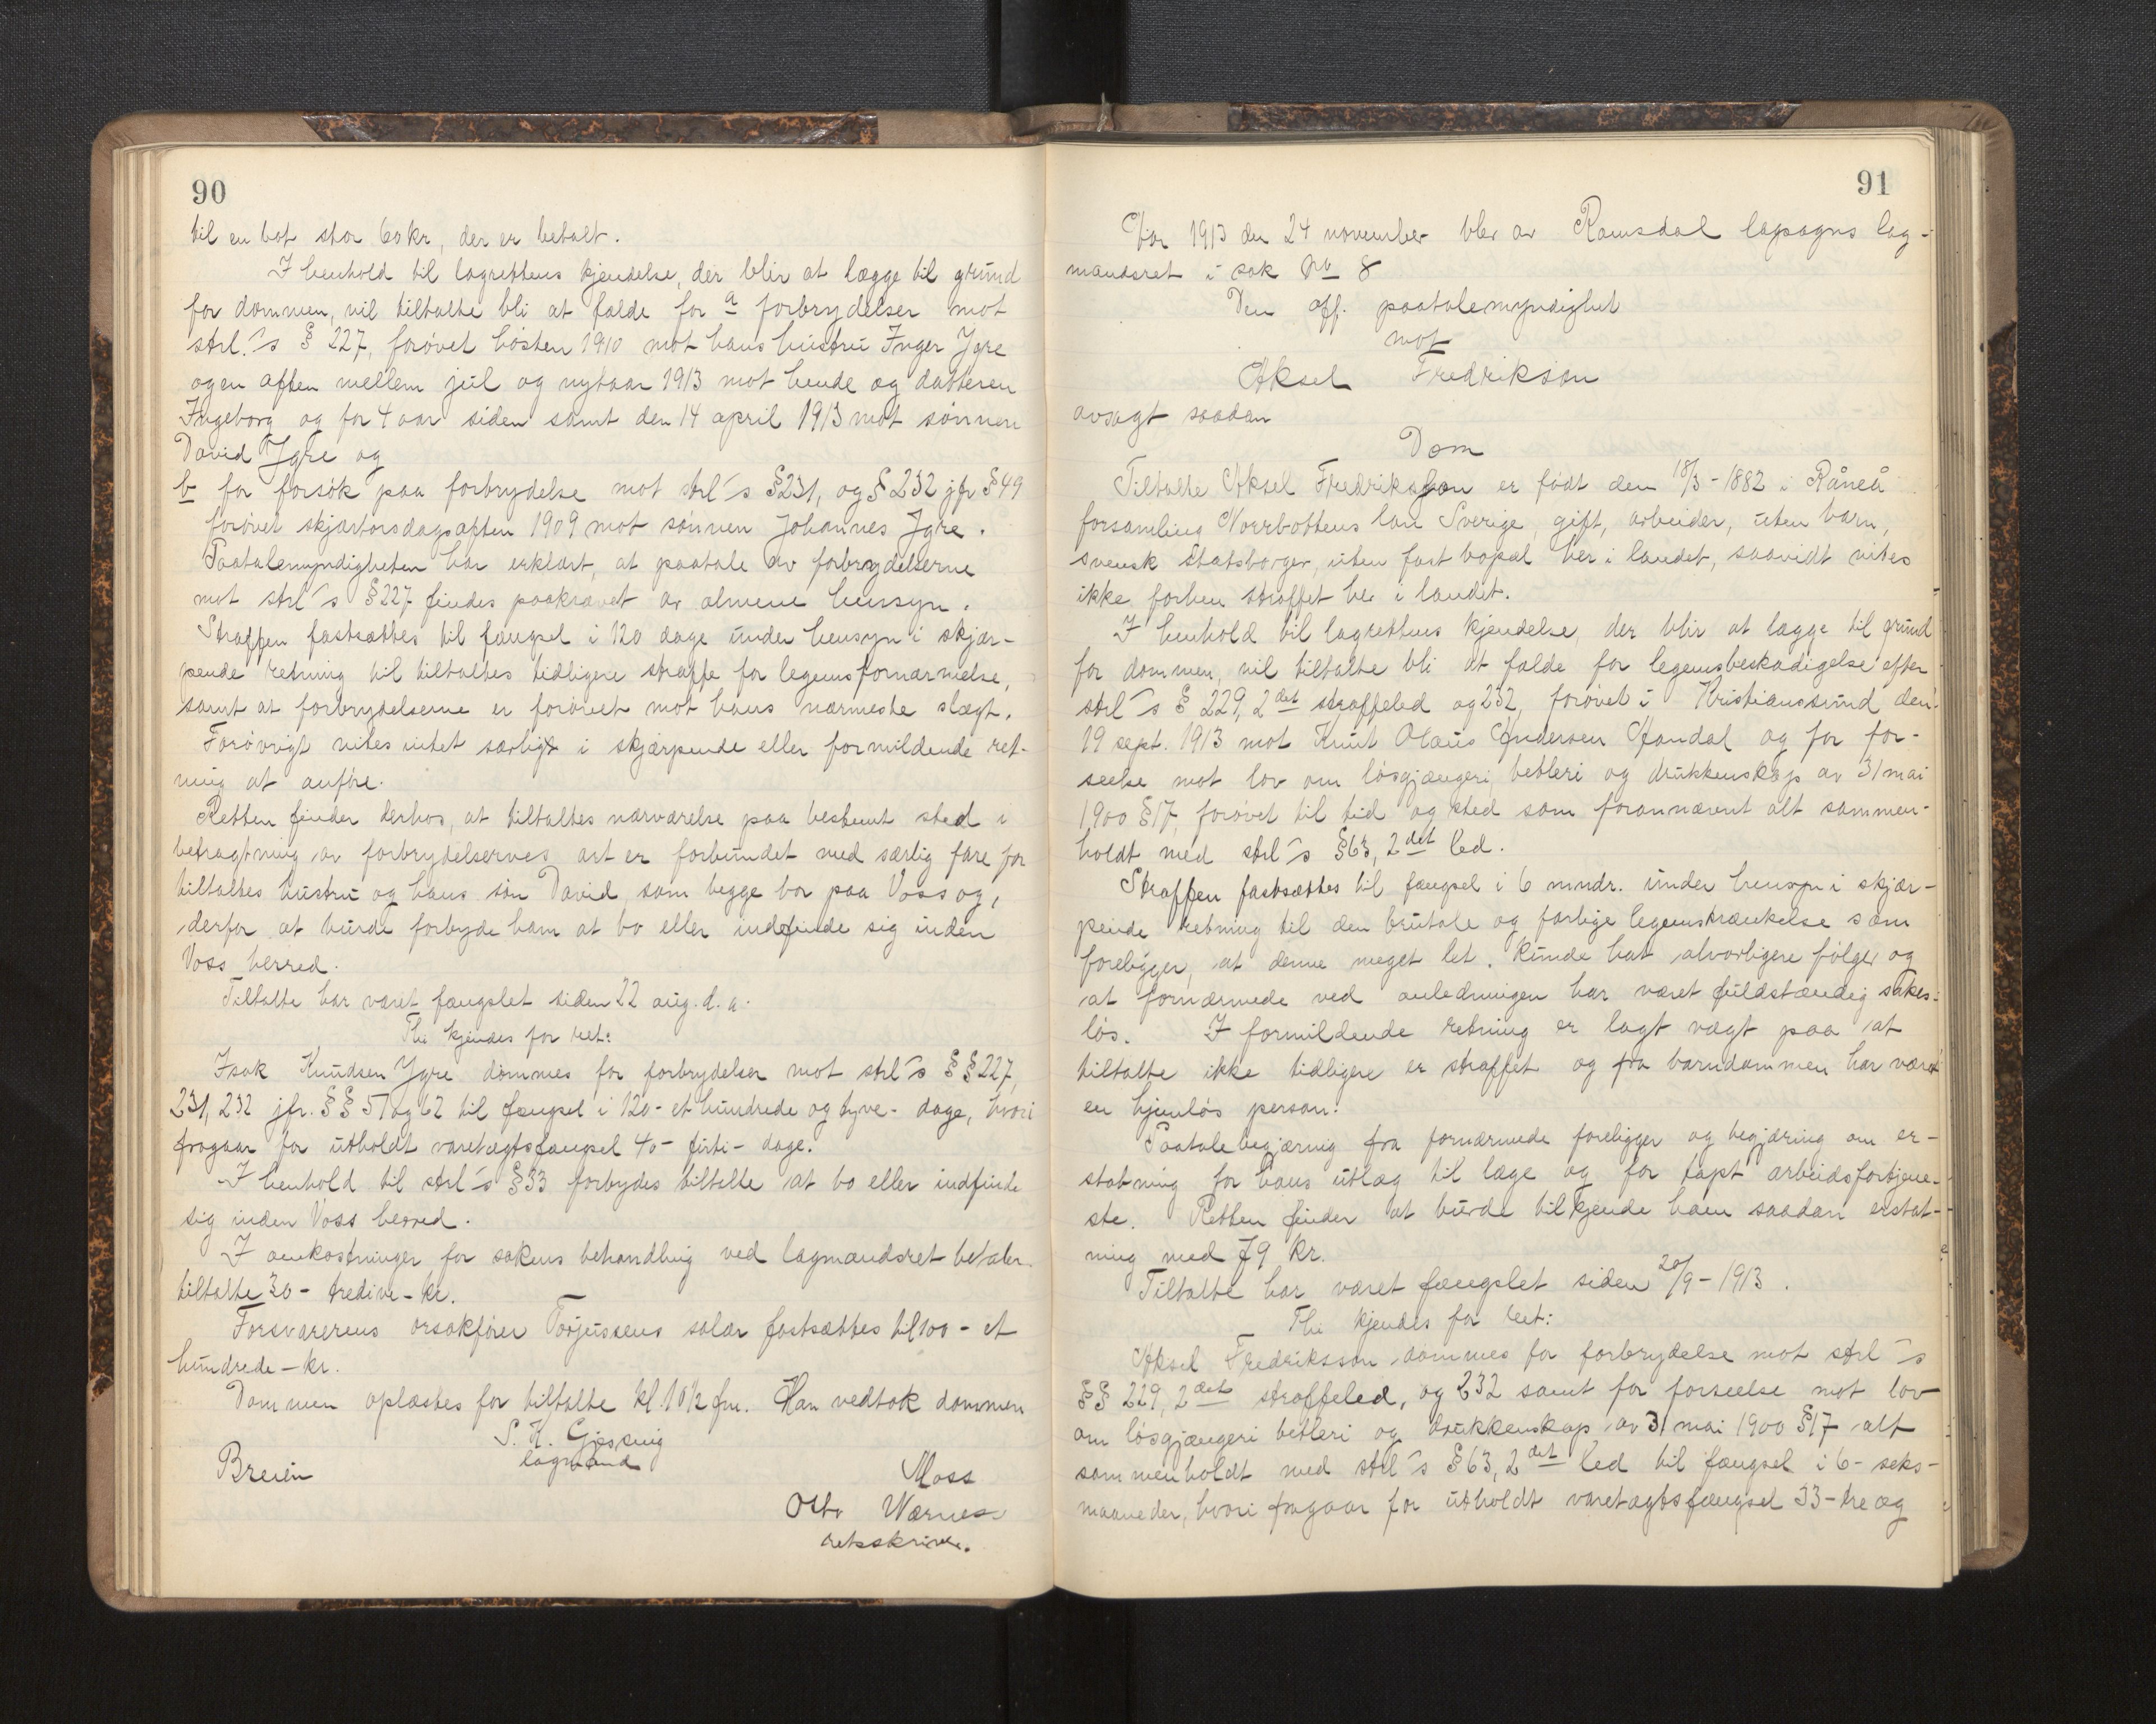 90
til en bot stor 60 kr, der er betalt.
I henhold til lagrettens kjendelse, der blir at lægge til grund
for dommen, vil tiltalte bli at fælde for a forbrydelser mot
strl.'s § 227, forøvet høsten 1910 mot hans hustru Inger Ygre
og en aften mellem jul og nytaar 1913 mot hende og datteren
Ingeborg og for 4 aar siden samt den 14 april 1913 mot sønnen
David Ygre og
b for forsøk paa forbrydelse mot strl's § 231, og § 232 jfr § 49
forøvet skjærtorsdagsaften 1909 mot sønnen Johannes Ygre.
Paatalemyndigheten har erklært, at paatale av forbrydelserne
mot strl's § 227 findes paakrævet av almene hensyn.
Straffen fastsættes til fængsel i 120 dage under hensyn i skjær-
pende retning til tiltaltes tidligere straffe for legemsfornærmelse,
samt at forbrydelserne er forøvet mot hans nærmeste slægt.
Forøvrigt vites intet særligt i skjærpende eller formildende ret-
ning at anføre.
Retten finder derhos, at tiltaltes nærværelse paa bestemt sted i
betragtning av forbrydelsernes art er forbundet med særlig fare for
tiltaltes hustru og hans søn David, som begge bor paa Voss og,
derfor at burde forbyde ham at bo eller indefinde sig inden
Voss herred.
Tiltalte har været fængslet siden 22 aug. d. a.
Thi kjendes for ret:
Isak Knudsen Ygre dømmes for forbrydelser mot strl's §§ 227,
231, 232 jfr. §§ 51 og 62 til fængsel i 120 - et hundrede og tyve - dage, hvori
fragaar for utholdt varetægtsfængsel 40 - firti - dage.
I henhold til strl's § 33 forbydes tiltalte at bo eller indfinde
sig inden Voss herred.
I omkostninger for sakens behandling ved lagmandsret betaler
tiltalte 30 - tredive - kr.
Forsvarerens orsakfører Torjussens salær fastsættes til 100 - et
hundrede - kr.
Dommen oplæstes for tiltalte kl. 10 1/2 fm. Han vedtok dommen
S. K. Gjessing
lagmand
Breien
Moss
Otto Wærnes
retsskriver.
91
Aar 1913 den 24 november blev av Romsdal lagsogns lag-
mandsret i sak No 8
Den off. paatalemyndighet
mot
Aksel Fredrikson
avsagt saadan
Dom
Tiltalte Aksel Fredriksson er født den 18/3 - 1882 i Råneå
forsamling Norrbottens län Sverige, gift, arbeider, uten barn,
svensk statsborger, uten fast bopæl her i landet, saavidt vites
ikke forhen straffet her i landet.
I henhold til lagrettens kjendelse, der blir at lægge til grund
for dommen, vil tiltalte bli at fælde for legemsbeskadigelse efter
strl's § 229, 2det straffeled og 232, forøvet i Kristianssund den
19 sept. 1913 mot Knut Olaus Andersen Aandal og for for-
seelse mot lov om løsgjængeri, betleri og drukkenskap av 31 mai
1900 § 17, forøvet til tid og sted som forannævnt alt sammen-
holdt med strl's § 63, 2det led.
Straffen fastsættes til fængsel i 6 mndr. under hensyn i skjær-
pende retning til den brutale og farlige legemskrænkelse som
foreligger, at denne meget let kunde hat alvorligere følger og
at fornærmede ved anledningen har været fuldstændig sakes-
løs. I formildende retning er lagt vægt paa at
tiltalte ikke tidligere er straffet og fra barndommen har været
en hjemløs person.
Paatalebegjæring fra fornærmede foreligger og begjæring om er-
statning for hans utlæg til læge og for tapt arbeidsfortjene-
ste. Retten finder at burde tilkjende ham saadan erstat-
ning med 79 kr.
Tiltalte har været fængslet siden 20/9 - 1913.
Thi kjendes for ret:
Aksel Fredriksson dømmes for forbrydelse mot strl's
§§ 229, 2det straffeled, og 232 samt for forseelse mot lov
om løsgjængeri betleri og drukkenskap av 31 mai 1900 § 17 alt
sammenholdt med strl's § 63, 2det led til fængsel i 6 - seks -
maaneder, hvori fragaar for utholdt varetægtsfængsel 33 - tre og